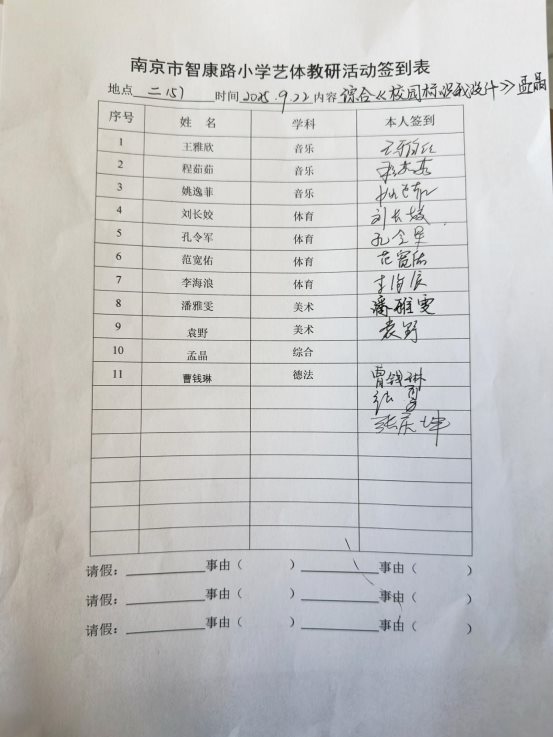 南京市智康路小学艺体教研活动签到表
地点 二(5) 时间 2025.9.22 内容 综合《校园标识我设计》孟晶
序号 姓 名 学科 本人签到
1 王雅欣 音乐 王雅欣
2 程茹茹 音乐 程茹茹
3 姚逸菲 音乐 姚逸菲
4 刘长姣 体育 刘长姣
5 孔令军 体育 孔令军
6 范宽佑 体育 范宽佑
7 李海浪 体育 李海浪
8 潘雅雯 美术 潘雅雯
9 袁野 美术 袁野
10 孟晶 综合
11 曹钱琳 德法 曹钱琳
张庆坤
请假: 事由( ) 事由( )
请假: 事由( ) 事由( )
请假: 事由( ) 事由( )